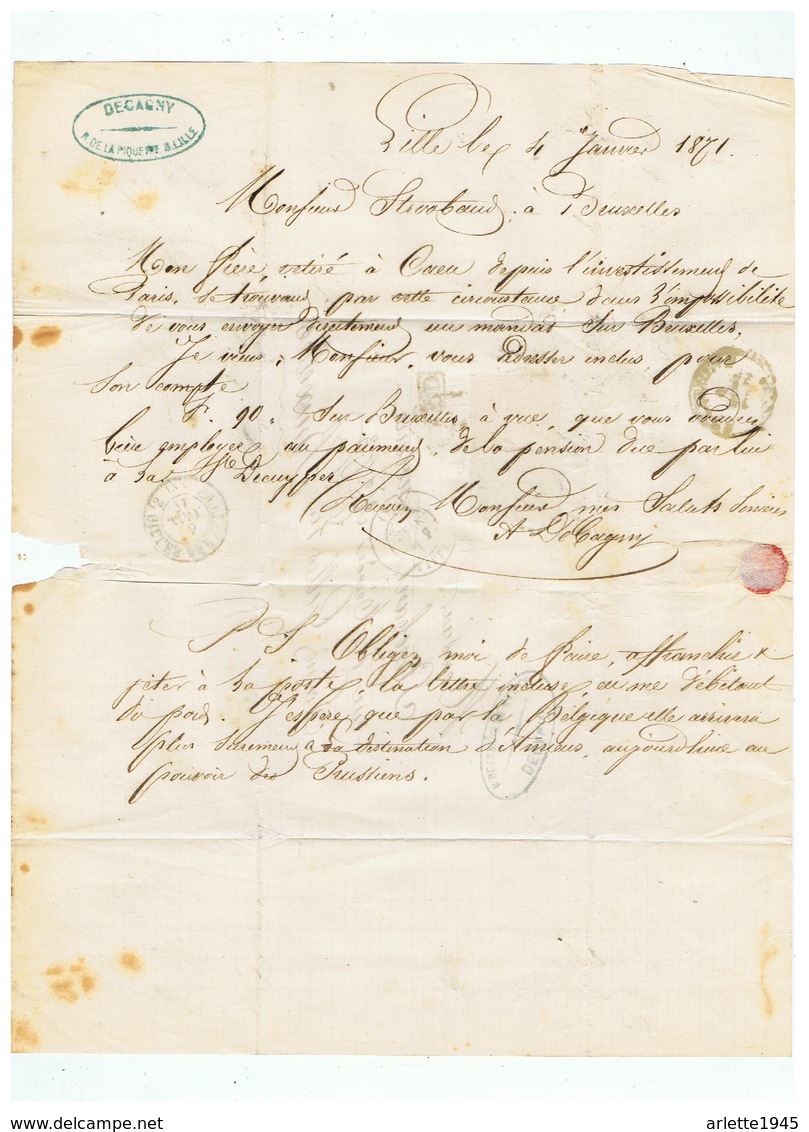 DECAGNY
R. DE LA PIQUERIE 3. LILLE
Lille le 4 Janvier 1871.
Monsieur Stroobant à Bruxelles
Mon Père, retiré à Caen depuis l'investissement de
Paris, se trouvant, par cette circonstance, dans l'impossibilité
de vous envoyer directement un mandat sur Bruxelles,
Je viens, Monsieur, vous adresser inclus, pour
son compte
F. 90, Sur Bruxelles à vue, que vous voudrez
bien employer au paiement de la pension due par lui
à Decuyper
Recevez Monsieur mes Saluts Sincères
A DeCagny
PS Obligez moi de faire affranchir &
jeter à la poste, la lettre incluse, en me débitant
du port. J'espère que par la Belgique elle arrivera
plus surement à sa destination d'Amiens, aujourd'hui au
pouvoir des Prussiens.
arlette1945